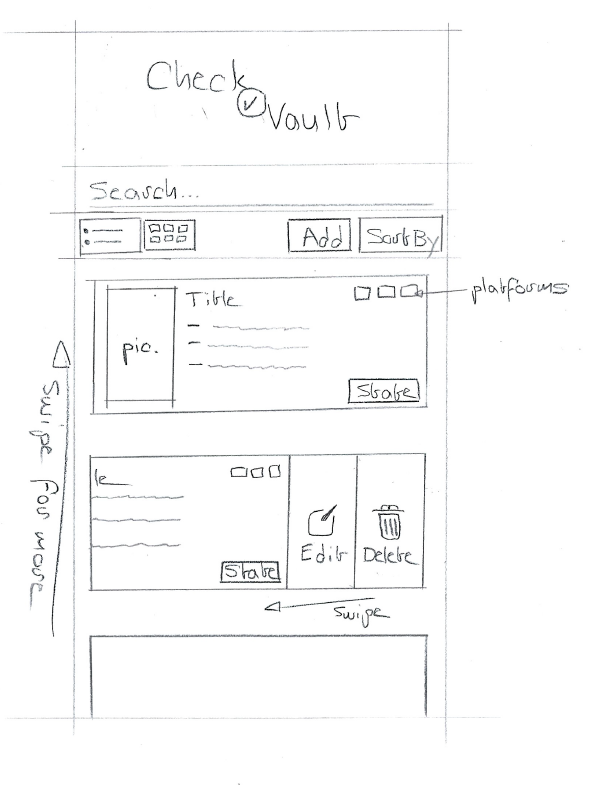 Check
Vault
Search...
Add
Sort By
Title
platforms
pic.
State
Swipe for more
le
State
Edit
Delete
Swipe